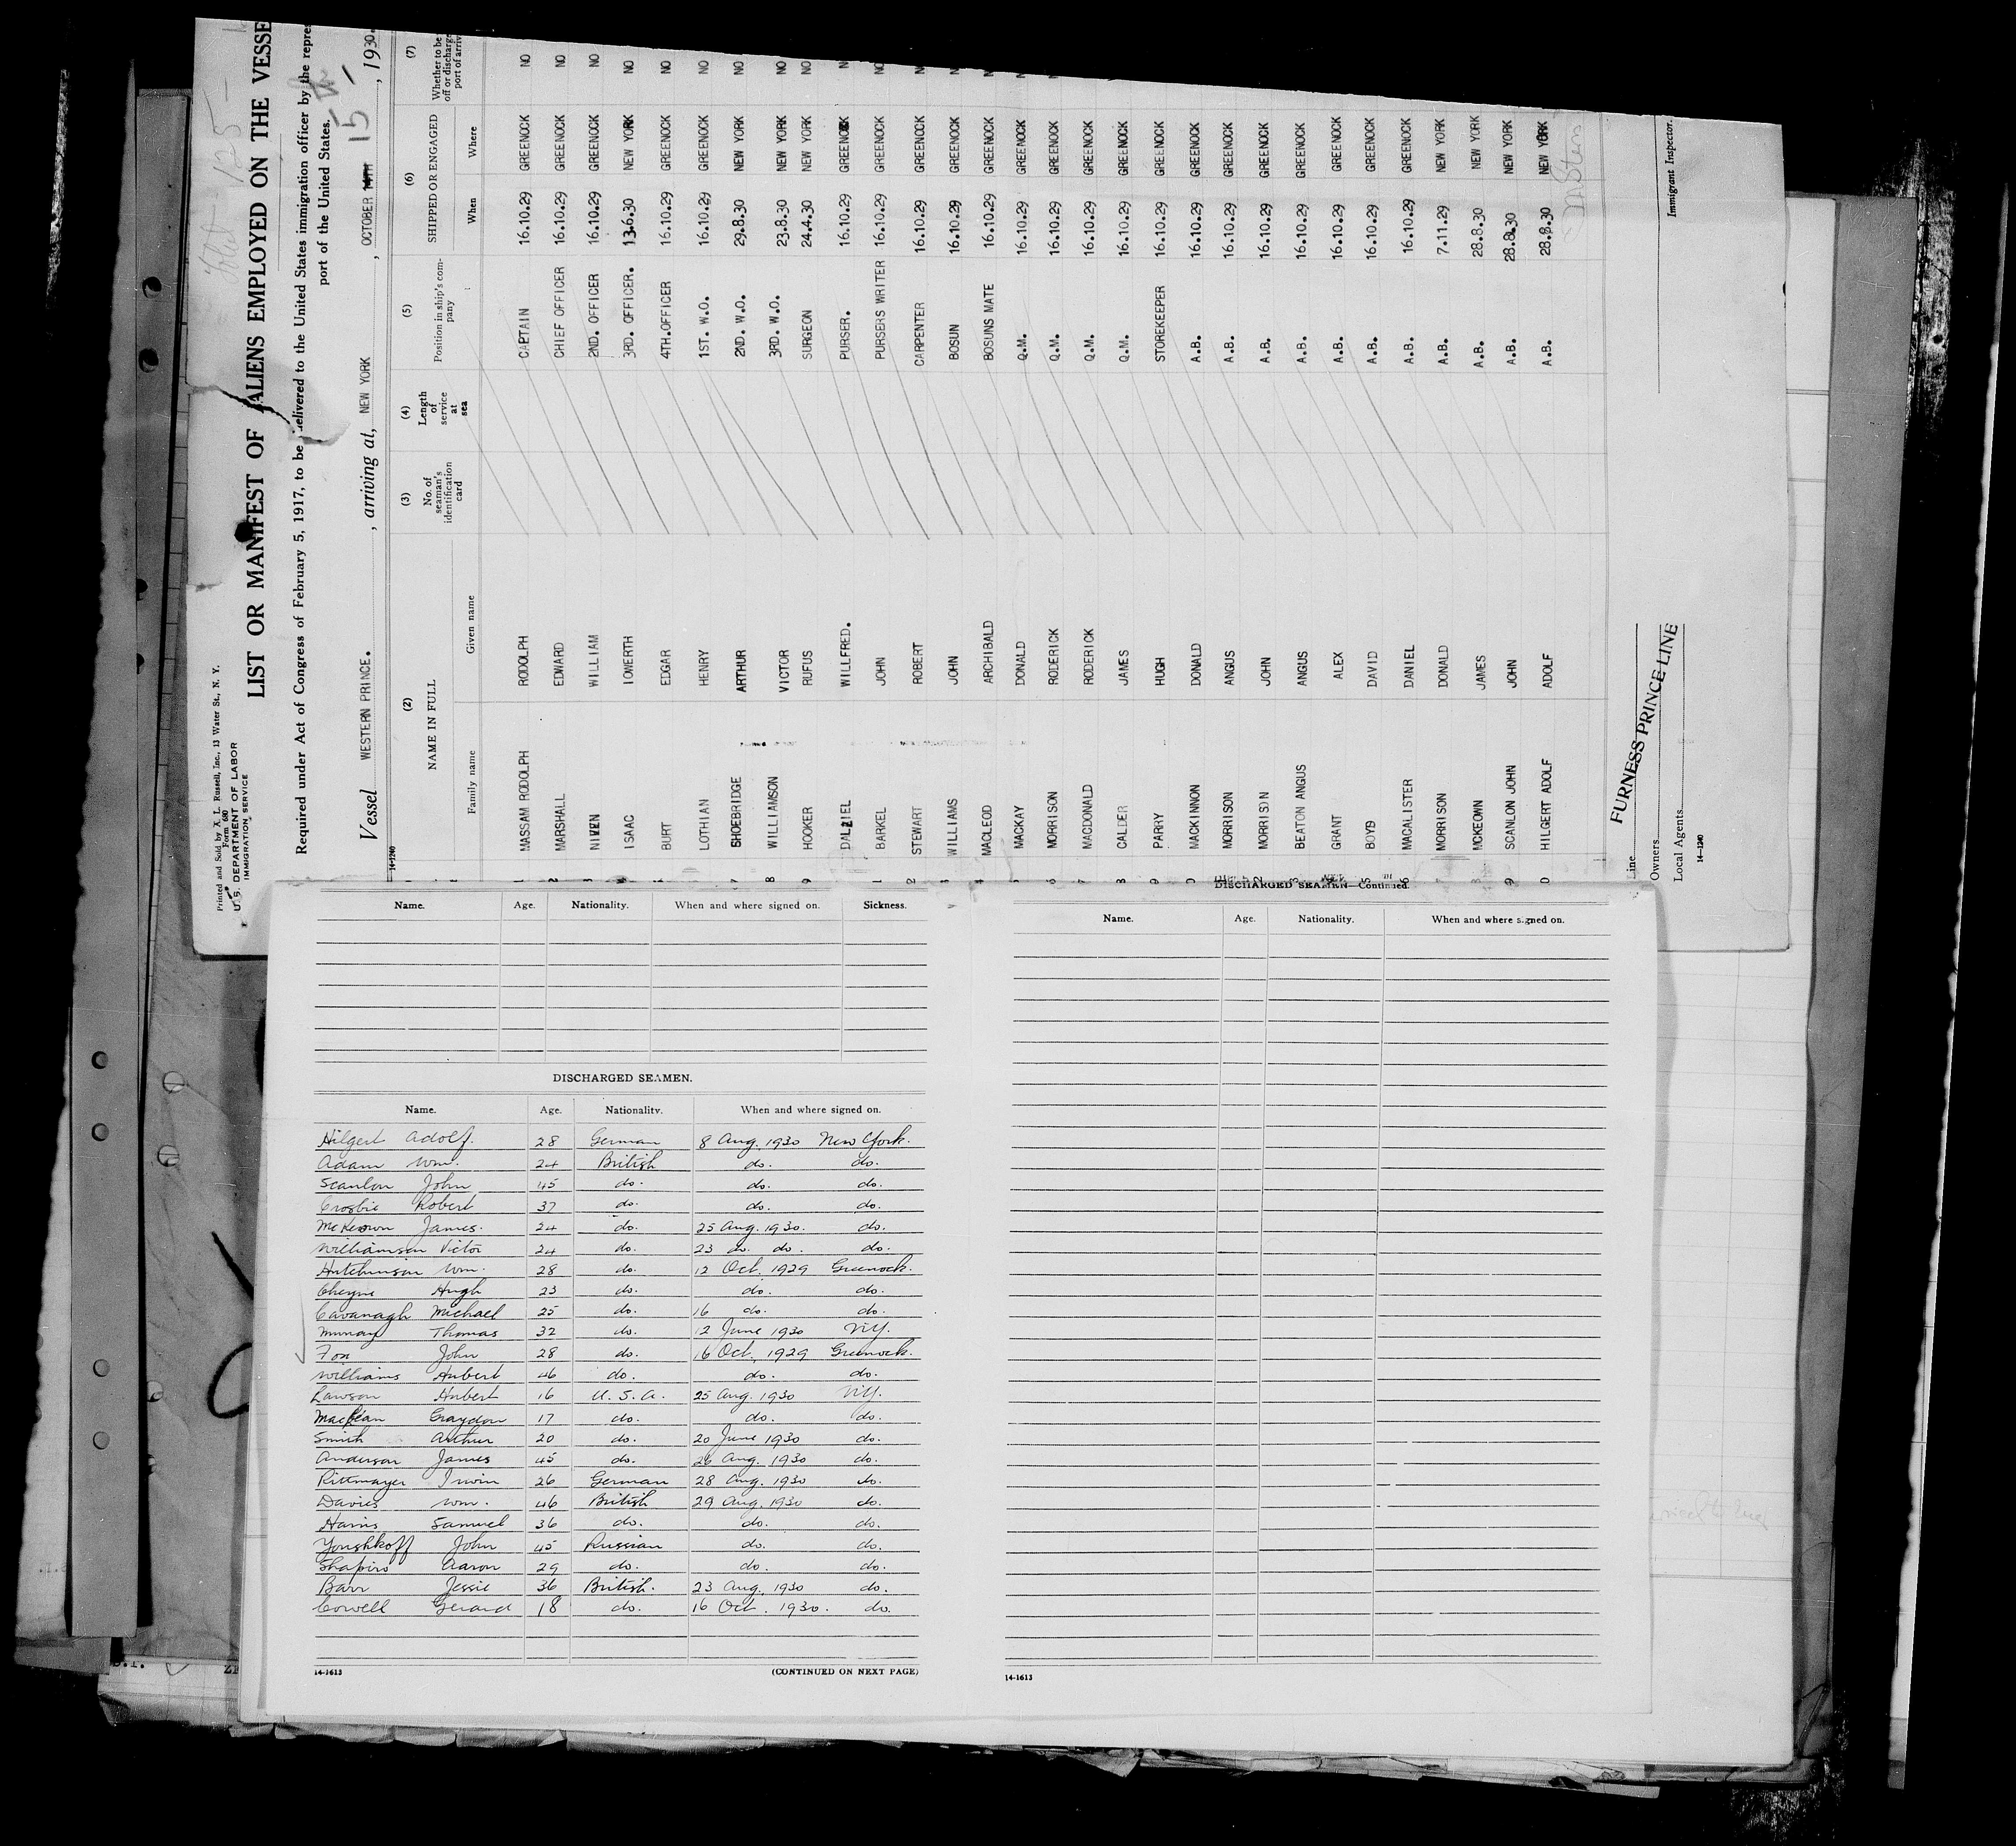 Printed and Sold by X. L. Russell, Inc., 13 Water St., N. Y.
Form 680
U. S. DEPARTMENT OF LABOR
IMMIGRATION SERVICE
LIST OR MANIFEST OF ALIENS EMPLOYED ON THE VESSE
Required under Act of Congress of February 5, 1917, to be delivered to the United States immigration officer by the repre
port of the United States.
Vessel WESTERN PRINCE. , arriving at, NEW YORK , OCTOBER 15 th , 1930.
14-1240
(2) (3) (4) (5) (6) (7)
NAME IN FULL No. of seaman's identification card Length of service at sea Position in ship's company SHIPPED OR ENGAGED Whether to be off or discharge port of arriv
Family name Given name When Where
MASSAM RODOLPH RODOLPH CAPTAIN 16.10.29 GREENOCK NO
2 MARSHALL EDWARD CHIEF OFFICER 16.10.29 GREENOCK NO
3 NIVEN WILLIAM 2ND. OFFICER 16.10.29 GREENOCK NO
ISAAC IOWERTH 3RD. OFFICER. 13.6.30 NEW YORK NO
BURT EDGAR 4TH.OFFICER 16.10.29 GREENOCK NO
LOTHIAN HENRY 1ST. W.O. 16.10.29 GREENOCK NO
7 SHOEBRIDGE ARTHUR 2ND. W.O. 29.8.30 NEW YORK NO
8 WILLIAMSON VICTOR 3RD. W.O. 23.8.30 NEW YORK NO
9 HOOKER RUFUS SURGEON 24.4.30 NEW YORK NO
DALZIEL WILLFRED. PURSER. 16.10.29 GREENOCK N
1 BARKEL JOHN PURSERS WRITER 16.10.29 GREENOCK NO
2 STEWART ROBERT CARPENTER 16.10.29 GREENOCK N
3 WILLIAMS JOHN BOSUN 16.10.29 GREENOCK N
4 MACLEOD ARCHIBALD BOSUNS MATE 16.10.29 GREENOCK N
MACKAY DONALD Q.M. 16.10.29 GREENOCK
6 MORRISON RODERICK Q.M. 16.10.29 GREENOCK
7 MACDONALD RODERICK Q.M. 16.10.29 GREENOCK
8 CALDER JAMES Q.M. 16.10.29 GREENOCK
9 PARRY HUGH STOREKEEPER 16.10.29 GREENOCK
0 MACKINNON DONALD A.B. 16.10.29 GREENOCK
MORRISON ANGUS A.B. 16.10.29 GREENOCK
2 MORRISON JOHN A.B. 16.10.29 GREENOCK
3 BEATON ANGUS ANGUS A.B. 16.10.29 GREENOCK
GRANT ALEX A.B. 16.10.29 GREENOCK
5 BOYD DAVID A.B. 16.10.29 GREENOCK
6 MACALISTER DANIEL A.B. 16.10.29 GREENOCK
MORRISON DONALD A.B. 7.11.29 NEW YORK
MCKEOWN JAMES A.B. 28.8.30 NEW YORK
9 SCANLON JOHN JOHN A.B. 28.8.30 NEW YORK
0 HILGERT ADOLF ADOLF A.B. 28.8.30 NEW YORK
Line FURNESS PRINCE LINE
Owners
Local Agents
Immigrant Inspector.
14-1240
Name. Age. Nationality. When and where signed on. Sickness.
DISCHARGED SEAMEN.
Name. Age. Nationality. When and where signed on.
Hilgert Adolf. 28 German 8 Aug. 1930 New York.
Adam Wm. 24 British do. do.
Scanlon John 45 do. do. do.
Crosbie Robert 37 do. do. do.
McKeown James. 24 do. 25 Aug. 1930. do.
Williamson Victor 24 do. 23 do. do. do.
Hutchinson Wm. 28 do. 12 Oct. 1929 Greenock.
Cheyne Hugh 23 do. do. do.
Cavanagh Michael 25 do. 16 do. do.
Murray Thomas 32 do. 12 June 1930 N.Y.
Fox John 28 do. 16 Oct. 1929 Greenock.
Williams Hubert 46 do. do. do.
Lawson Hubert 16 U. S. A. 25 Aug. 1930 N.Y.
MacBean Graydon 17 do. do. do.
Smith Arthur 20 do. 20 June 1930 do.
Anderson James 45 do. 26 Aug. 1930 do.
Rittmayer Irwin 26 German 28 Aug. 1930 do.
Davies Wm. 46 British 29 Aug. 1930 do.
Harris Samuel 36 do. do. do.
Youshkoff John 45 Russian do. do.
Shapiro Aaron 29 do. do. do.
Barr Jessie 36 British. 23 Aug. 1930 do.
Cowell Gerard 18 do. 16 Oct. 1930. do.
14-1613 (CONTINUED ON NEXT PAGE)
DISCHARGED SEAMEN—Continued.
Name. Age. Nationality. When and where signed on.
14-1613